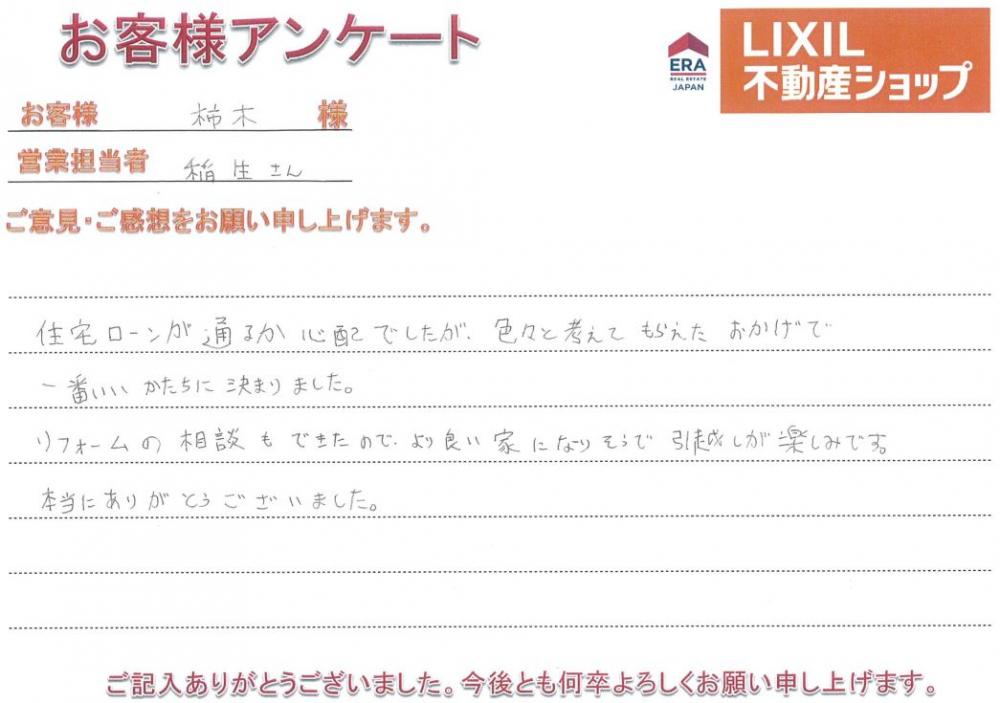 お客様アンケート
ERA
REAL ESTATE
JAPAN
LIXIL
不動産ショップ
お客様 柿木 様
営業担当者 稲生さん
ご意見・ご感想をお願い申し上げます。
住宅ローンが通るか心配でしたが、色々と考えてもらえたおかげで
一番いいかたちに決まりました。
リフォームの相談もできたので、より良い家になりそうで引越しが楽しみです。
本当にありがとうございました。
ご記入ありがとうございました。今後とも何卒よろしくお願い申し上げます。